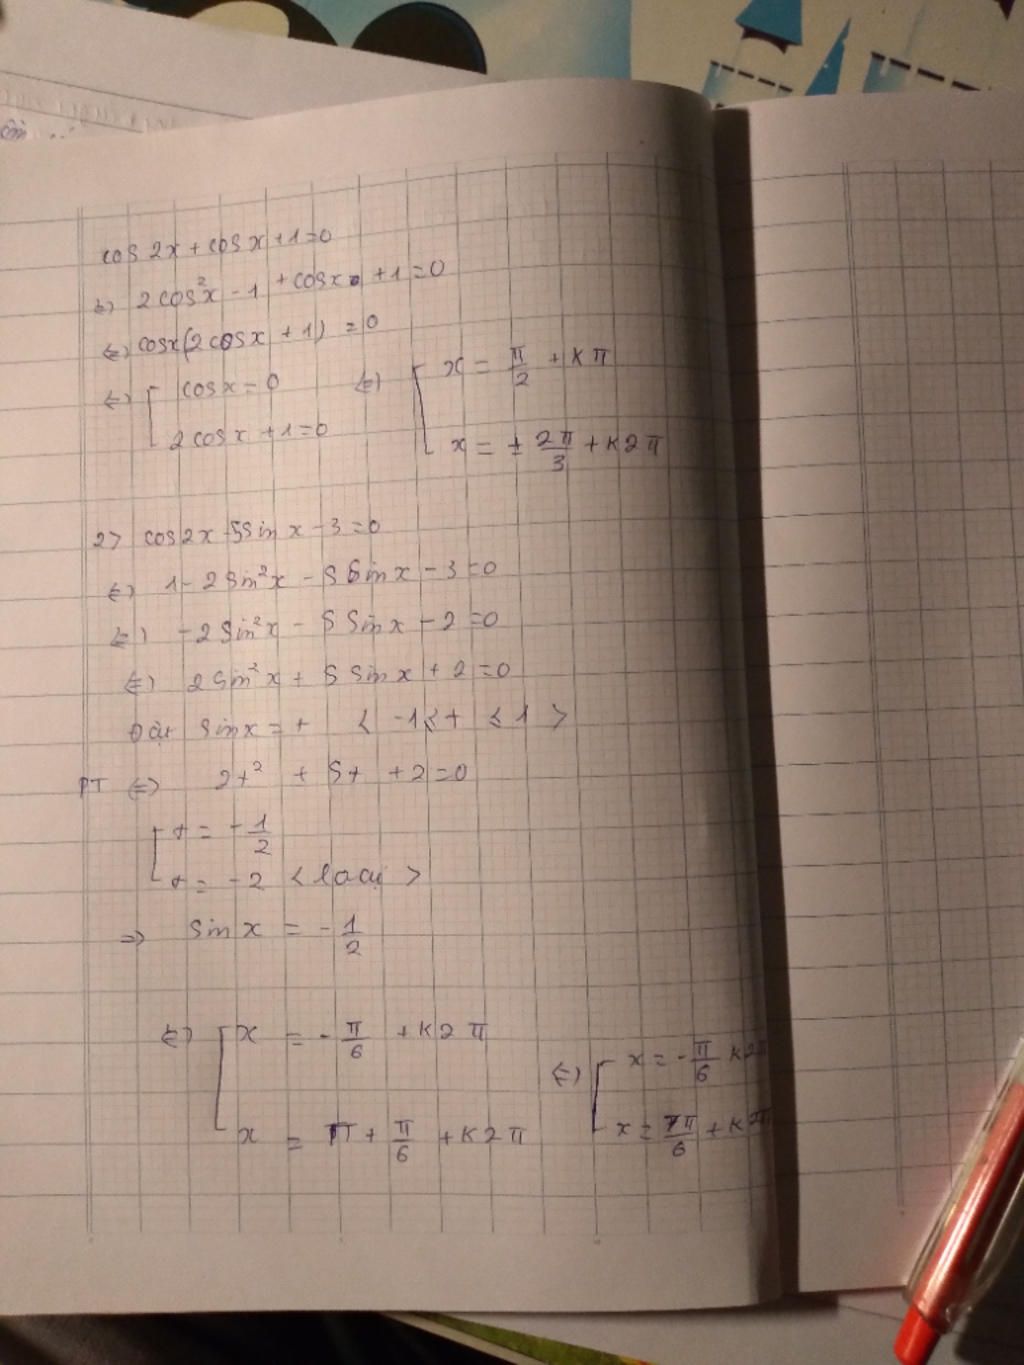 cos 2x + cos x + 1 = 0
⇔ 2cos²x - 1 + cosx + 1 = 0
⇔ cosx(2cosx + 1) = 0
⇔ [ cosx = 0 ⇔ [ x = π/2 + kπ
2cosx + 1 = 0 x = ± 2π/3 + k2π
2> cos2x - 5sin x - 3 = 0
⇔ 1 - 2sin²x - 5sinx - 3 = 0
⇔ -2sin²x - 5sinx - 2 = 0
⇔ 2sin²x + 5sinx + 2 = 0
Đặt sinx = t < -1 ≤ t ≤ 1 >
PT ⇔ 2t² + 5t + 2 = 0
[ t = -1/2
t = -2 <loại>
⇒ sin x = -1/2
⇔ [ x = -π/6 + k2π ⇔ [ x = -π/6 k2π
x = π + π/6 + k2π x = 7π/6 + k2π